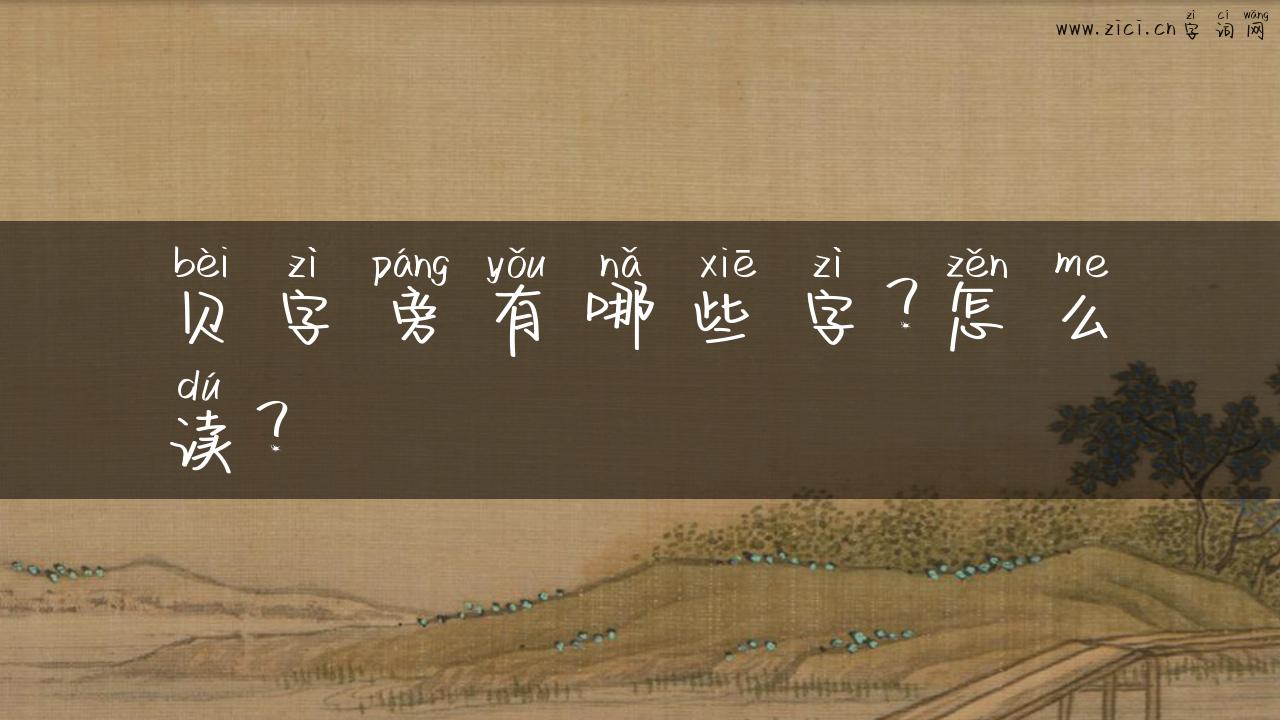 zì cí wǎng
www.zici.cn字词网
bèi zì páng yǒu nǎ xiē zì zěn me
贝字旁有哪些字？怎么
dú
读？